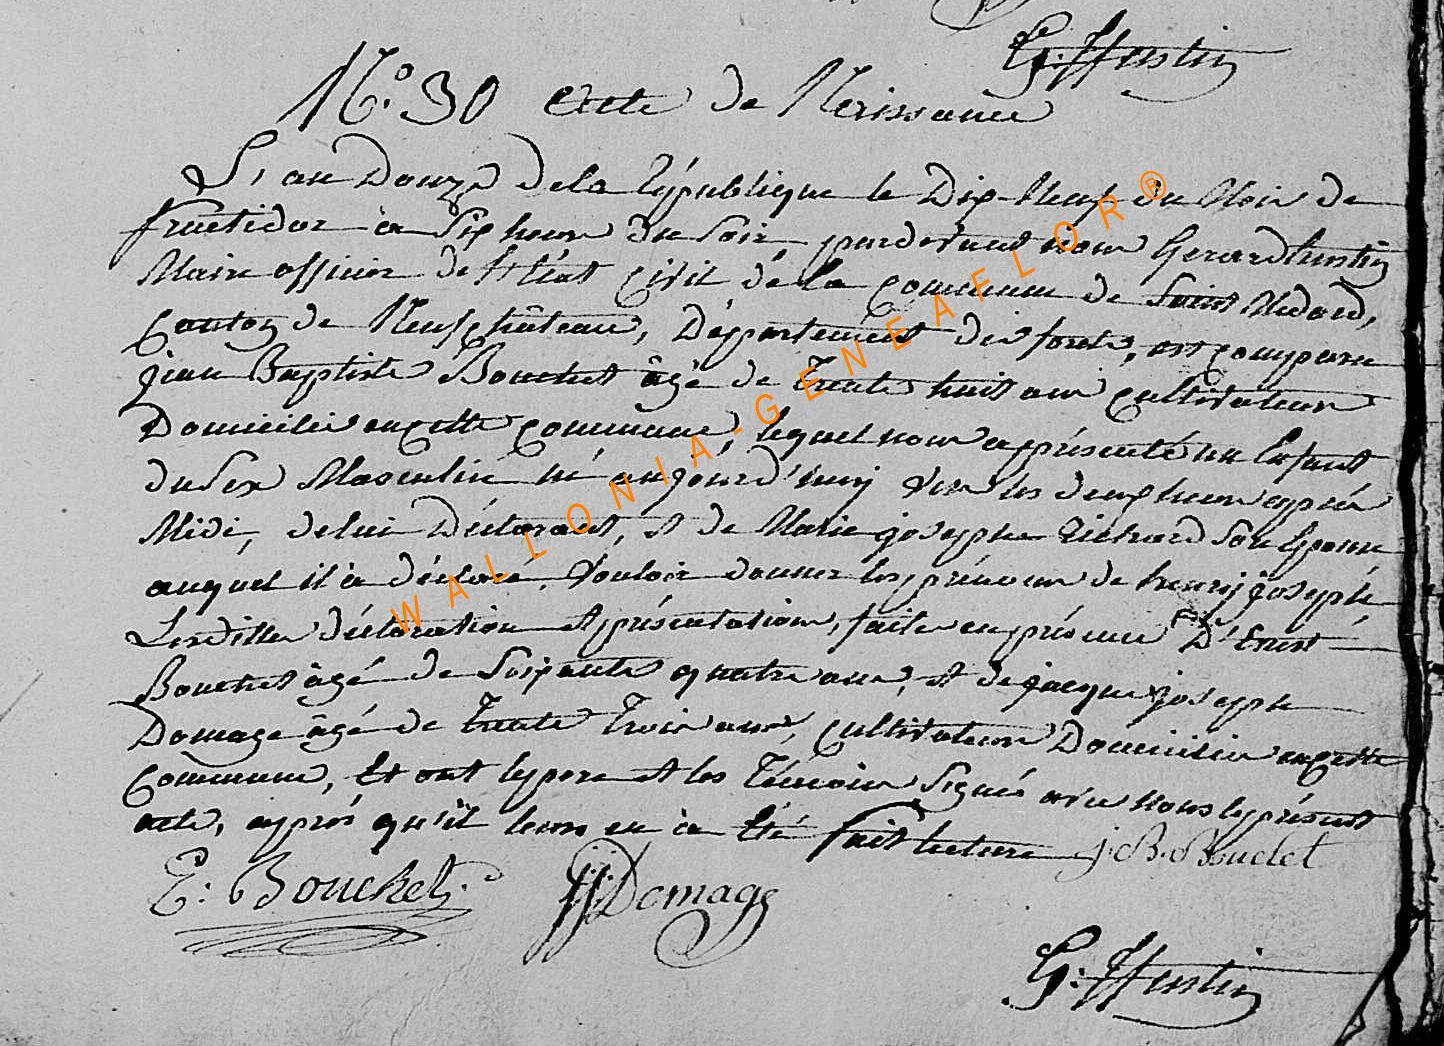 G: Hustin
N.° 30 Acte de Neissance
L'an Douze de la République le Dix-Neuf du Mois de
fructidor à Six heures du Soir, pardevant nous Gerard hustin
Maire officier de l'état Civil de la Commune de Saint Médard,
Canton de Neufchâteau, Département des forets, est comparu
jean Baptiste Bouchet âgé de Trente huit ans Cultivateur
Domicilié en cette Commune, lequel nous a présenté un Enfant
du Sex Masculin né aujourd'huy vers les deux heures après
Midi, de lui Déclarant, et de Marie josephe Richard Son Epouse
auquel il à déclaré Vouloir donner les prénoms de henry joseph
Lesdittes déclaration et présentation, faites en présence D'Ernest
Bouchet âgé de Soixante quatre ans, et de jacque joseph
Domage âgé de Trente Trois ans, Cultivateurs Domiciliés en cette
Commune, Et ont le pere et les Témoins Signés avec Nous le présent
acte, après qu'il leurs en à Eté fait lecture j. B. Bouclet
E: Bouchet. JJ Domage
G: Hustin
WALLONIA-GENEAFELOR®